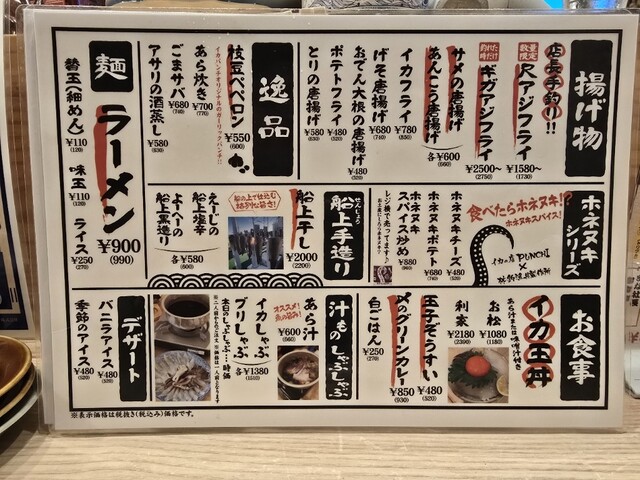 揚げ物
店長手釣り!!
数量限定
尺アジフライ
¥1580〜
(1730)
釣れた時だけ
ギガアジフライ
¥2500〜
(2750)
サメの唐揚げ
あんこう唐揚げ
各¥600
(660)
イカフライ
¥780
げそ唐揚げ
¥680
おでん大根の唐揚げ
¥480
ポテトフライ
¥480
とりの唐揚げ
¥580
逸品
枝豆ペペロン
¥550
(600)
イカパンチオリジナルのガーリックパンチ!!
あら炊き
¥700
(770)
ごまサバ
¥680
アサリの酒蒸し
¥580
麺
ラーメン
¥900
(990)
替玉(細めん)
¥110
(120)
味玉
¥110
(120)
ライス
¥250
(270)
ホネヌキシリーズ
食べたらホネヌキ!?
ホネヌキスパイス!
イカの店PUNCH
×
ホネヌキチーズ
¥480
ホネヌキポテト
¥680
ホネヌキスパイス炒め
¥880
レジ横で売ってます♪
せんじょう
船上手造り
船上干し
¥2000
(2200)
船の上で仕込む
えーじの船上塩辛
よーへーの船上黒造り
各¥580
お食事
イカ玉丼
あら汁または味噌汁付き
お松
¥1080
利家
¥2180
玉子ぞうすい
¥480
〆のグリーンカレー
¥850
(930)
白ごはん
¥250
(270)
汁ものしゃぶしゃぶ
あら汁
¥600
オススメ!
魚の旨み!
イカしゃぶ
ブリしゃぶ
各¥1380
本日のしゃぶしゃぶ…時価
※二人前からご注文 ※価格は一人前となります
デザート
バニラアイス
¥480
季節のアイス
¥480
※表示価格は税抜き(税込み)価格です。